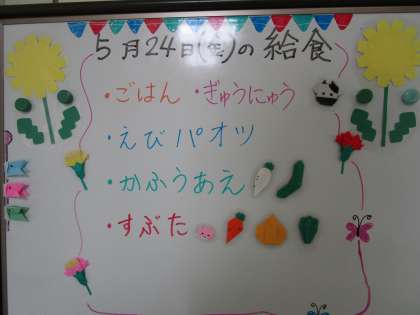 5月24日(金)の給食
・ごはん ・ぎゅうにゅう
・えびパオツ
・かふうあえ
・すぶた